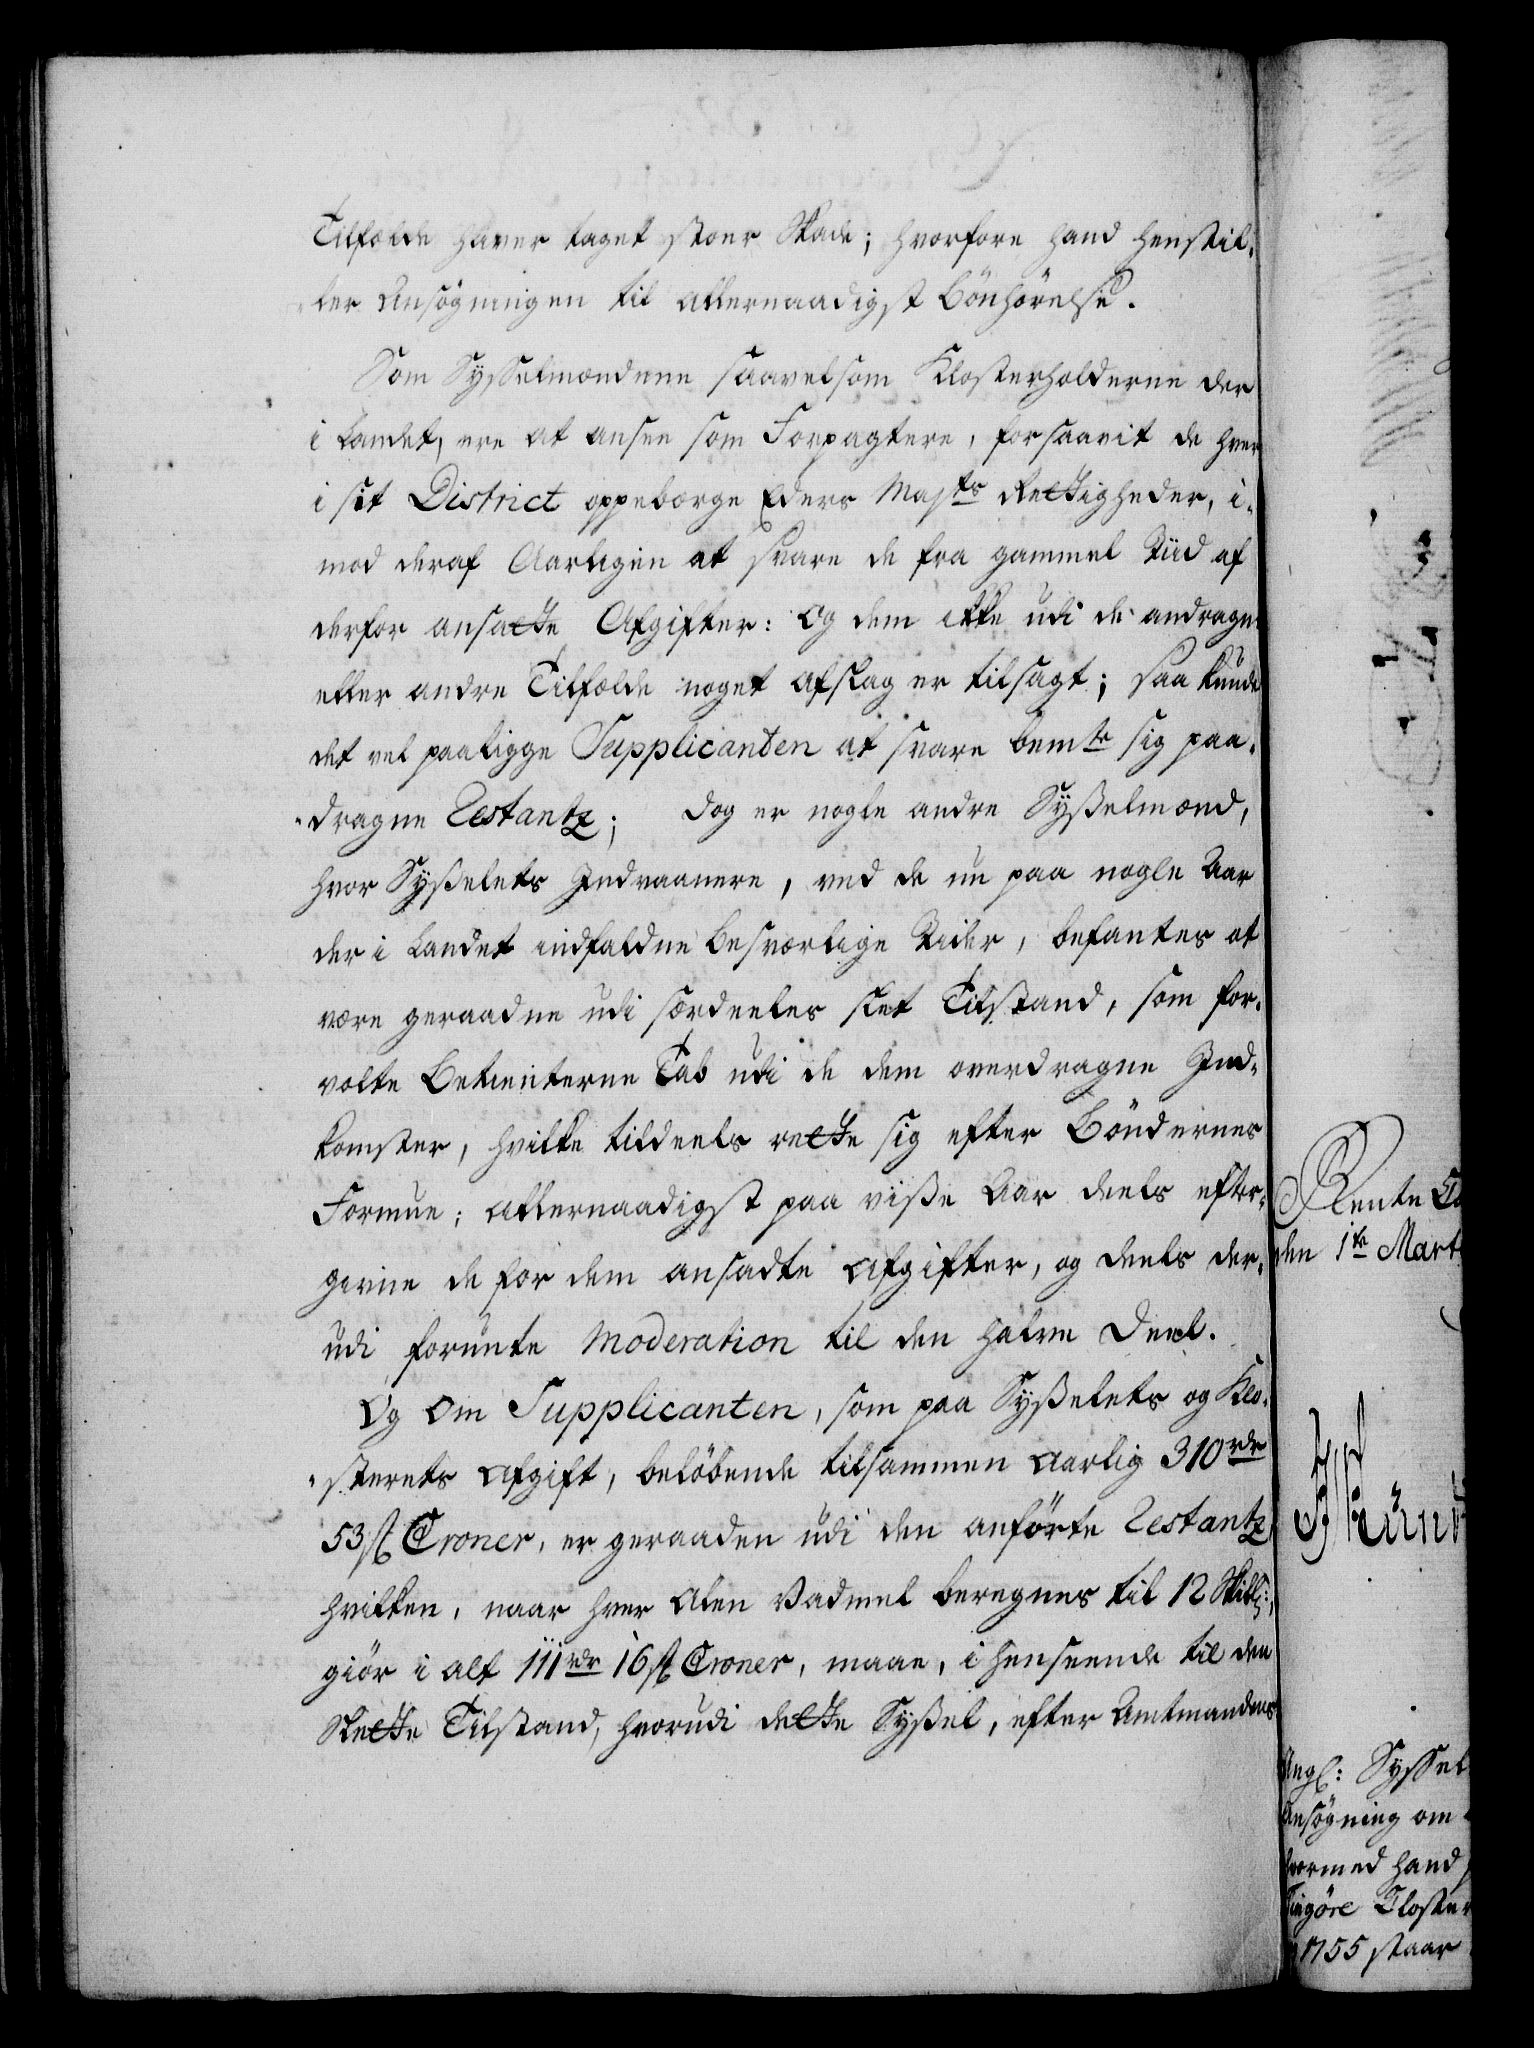 Tilfælde haver taget stoer Skade; hvorfore hand henstil-
ler Ansøgningen til allernaadigst Bönhörelse.
Som Sysselmændene saavelsom Klosterholderne der
i Landet, ere at ansee som Forpagtere, forsaavit de hver
i sit District oppebærge Eders Majts Rettigheder, i-
mod deraf Aarligen at svare de fra gammel Tiid af
derfor ansatte Afgifter: Og dem ikke udi de andragne
eller andre Tilfælde noget Afslag er tilsagt; saa kunde
det vel paaligge Supplicanten at svare bemte sig paa-
dragne Restantz; Dog er nogle andre Sysselmænd,
hvor Sysselets Indvaanere, ved de nu paa nogle Aar
der i Landet indfaldne besværlige Tider, befantes at
være geraadne udi særdeeles slet Tilstand, som for-
volte Betienterne Tab udi de dem overdragne Ind-
komster, hvilke tildeels rette sig efter Böndernes
Formue; allernaadigst paa visse Aar deels efter-
givne de for dem ansadte Afgifter, og deels der-
udi forunte Moderation til den halve Deel.
Og om Supplicanten, som paa Sysselets og Klo-
sterets Afgift, belöbende tilsammen Aarlig 310 rdr
53 ß Croner, er geraaden udi den anförte Restantz
hvilken, naar hver Alen Vadmel beregnes til 12 Skill:,
giör i alt 111 rdr 16 ß Croner, maae, i henseende til den
Slette Tilstand, hvorudi dette Syssel, efter Amtmandens
Rente Ca
den 1te Mart
Ang: Syssel
Ansögning om
hvormed hand
Tingöre Closter
1755 staar